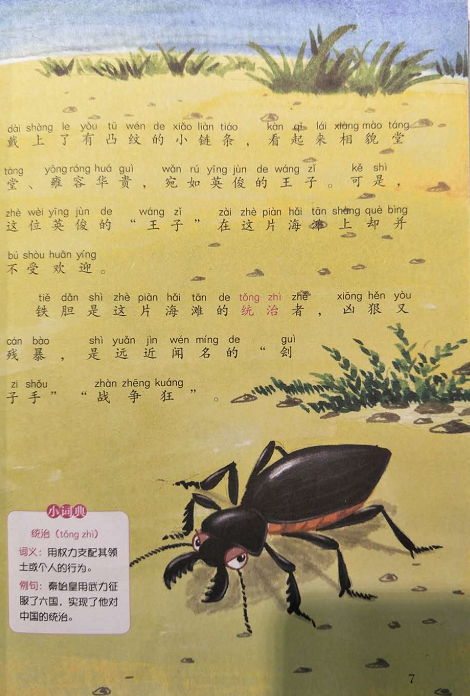 dài shàng le yǒu tū wén de xiǎo liàn tiáo , kàn qǐ lái xiàng mào táng
戴上了有凸纹的小链条，看起来相貌堂
táng yōng róng huá guì wǎn rú yīng jùn de wáng zǐ kě shì
堂、雍容华贵，宛如英俊的王子。可是，
zhè wèi yīng jùn de wáng zǐ zài zhè piàn hǎi tān shàng què bìng
这位英俊的“王子”在这片海滩上却并
bú shòu huān yíng
不受欢迎。
tiě dǎn shì zhè piàn hǎi tān de tǒng zhì zhě xiōng hěn yòu
铁胆是这片海滩的统治者，凶狠又
cán bào shì yuǎn jìn wén míng de guì
残暴，是远近闻名的“刽
zi shǒu zhàn zhēng kuáng
子手”“战争狂”。
小词典
统治（tǒng zhì）
词义：用权力支配其领
土或个人的行为。
例句：秦始皇用武力征
服了六国，实现了他对
中国的统治。
7